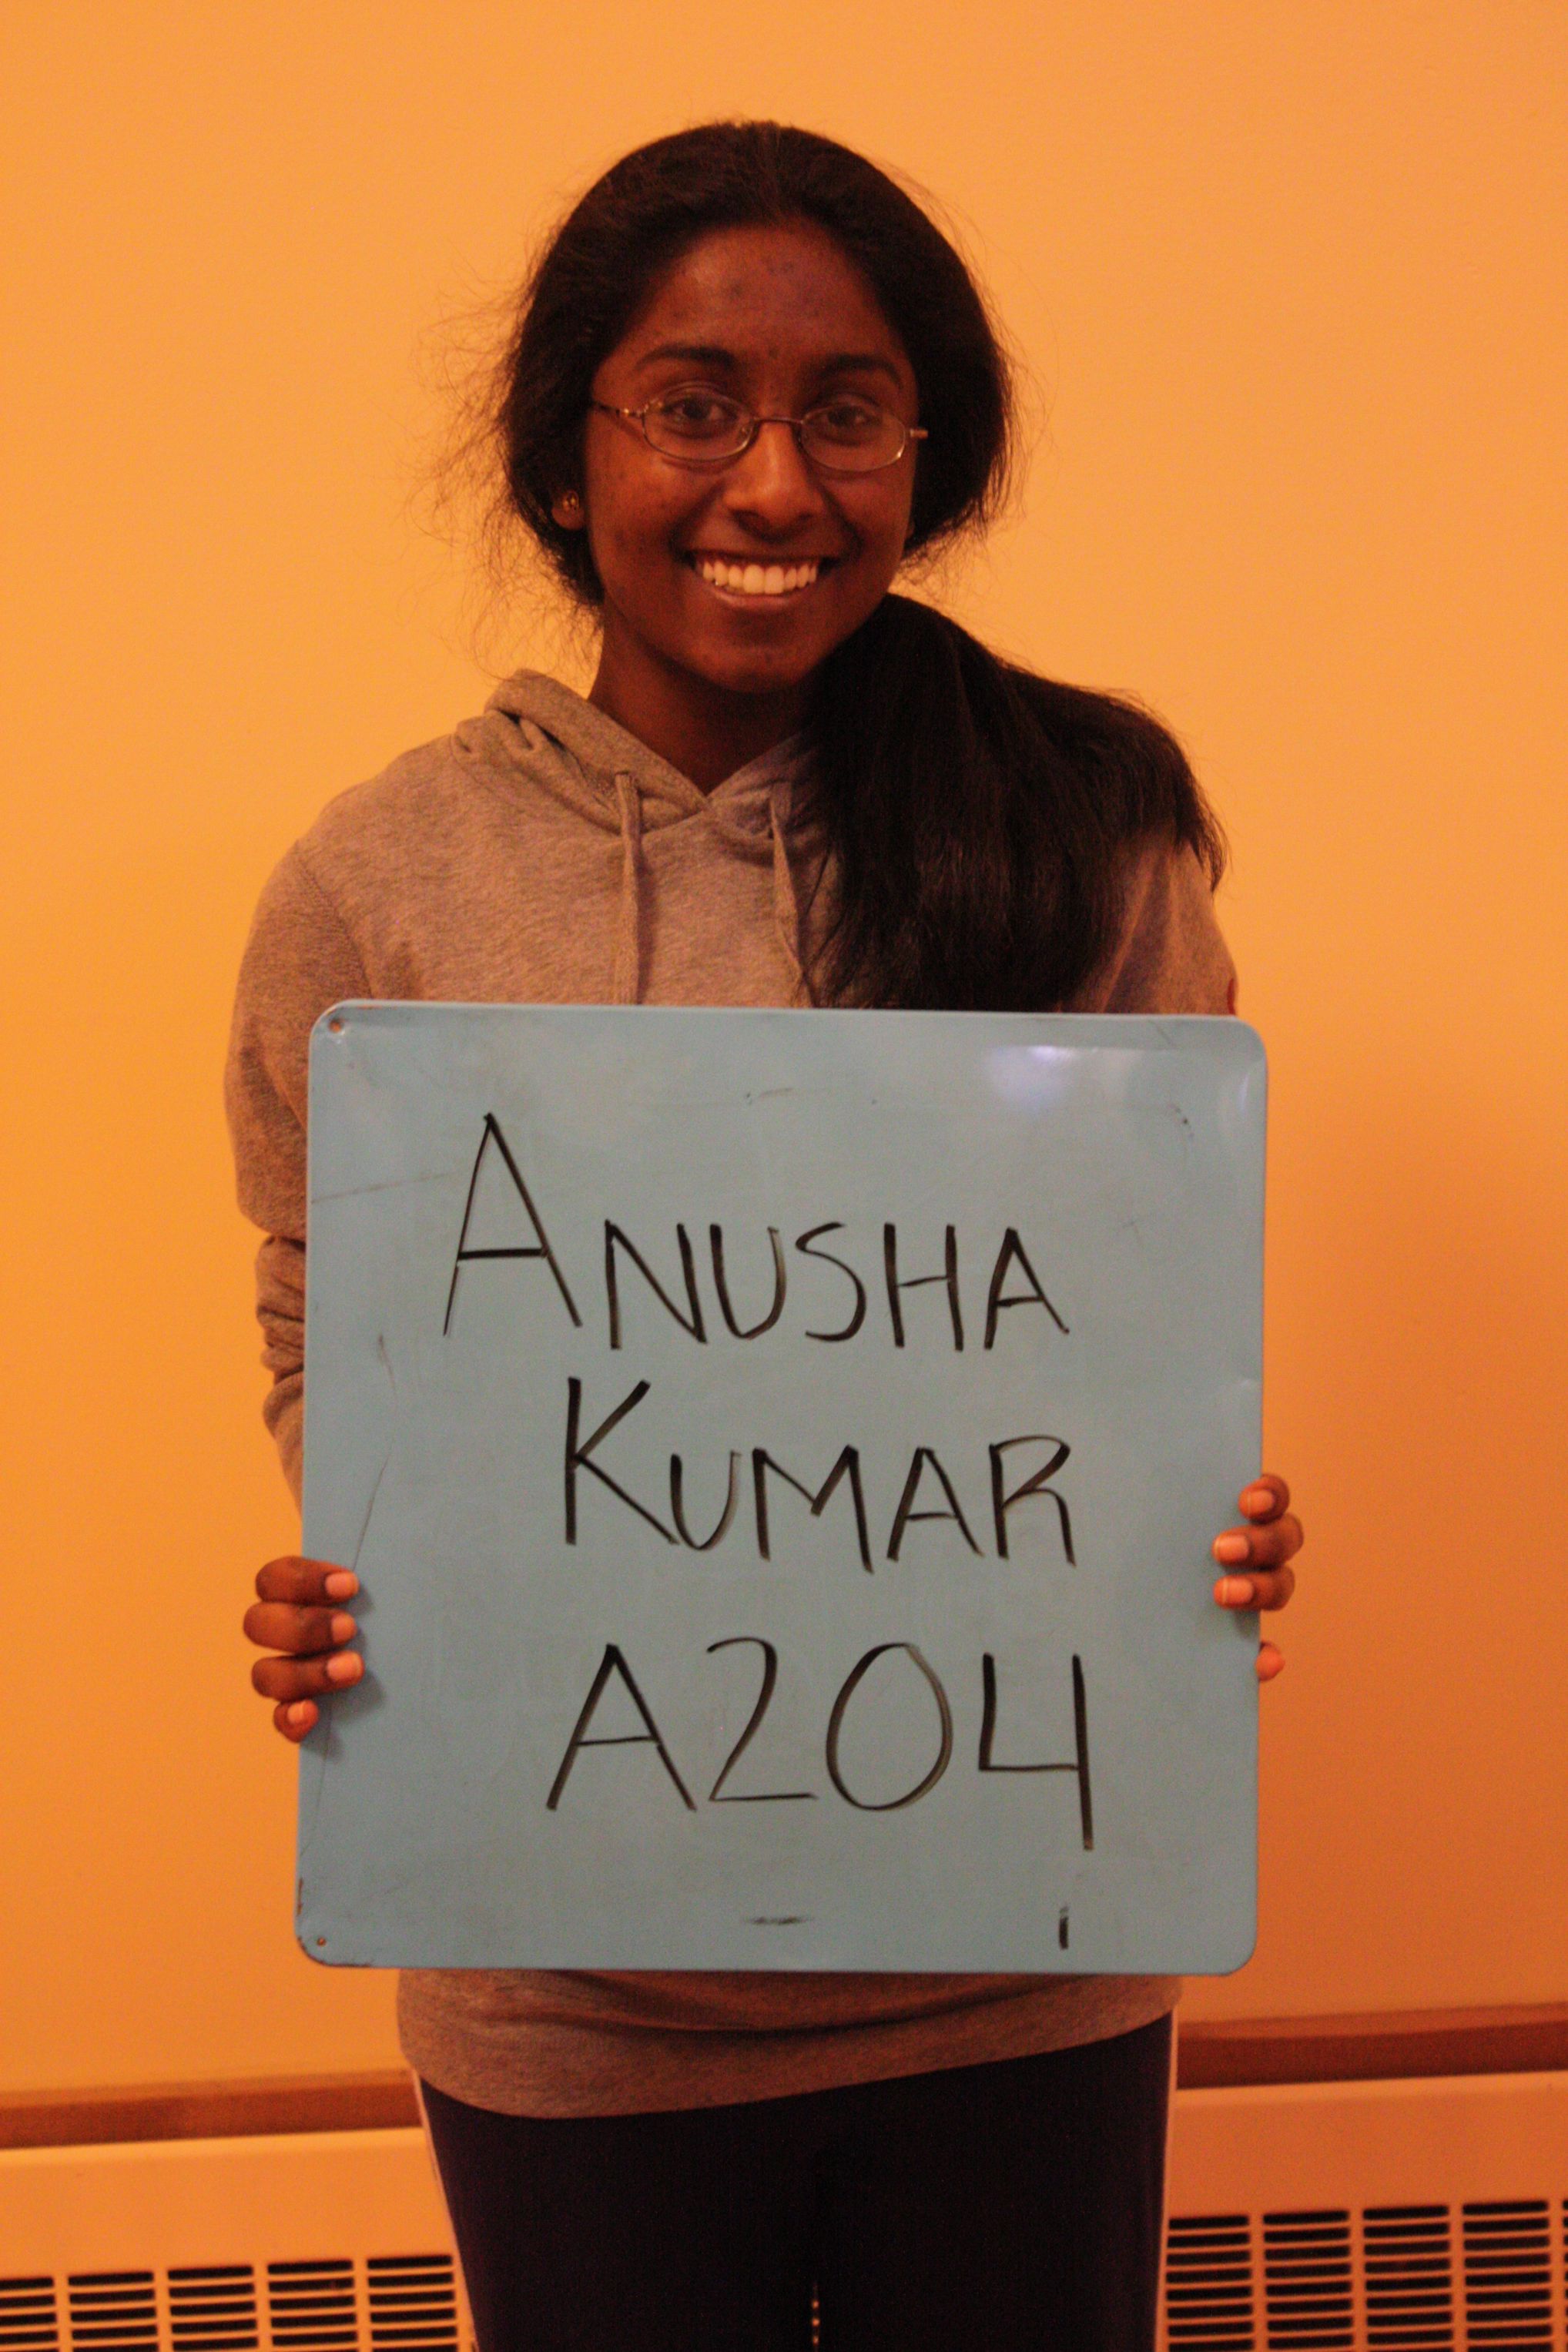 ANUSHA
KUMAR
A204